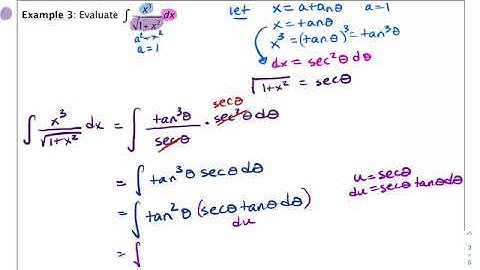 Example 3: Evaluate ∫ x³/√(1+x²) dx
a²+x²
a=1
let x = a tanθ a=1
x = tanθ
x³ = (tanθ)³ = tan³θ
dx = sec²θ dθ
√(1+x²) = secθ
secθ
∫ x³/√(1+x²) dx = ∫ tan³θ/secθ · sec²θ dθ
= ∫ tan³θ secθ dθ
u = secθ
du = secθ tanθ dθ
= ∫ tan²θ (secθ tanθ dθ)
du
= ∫